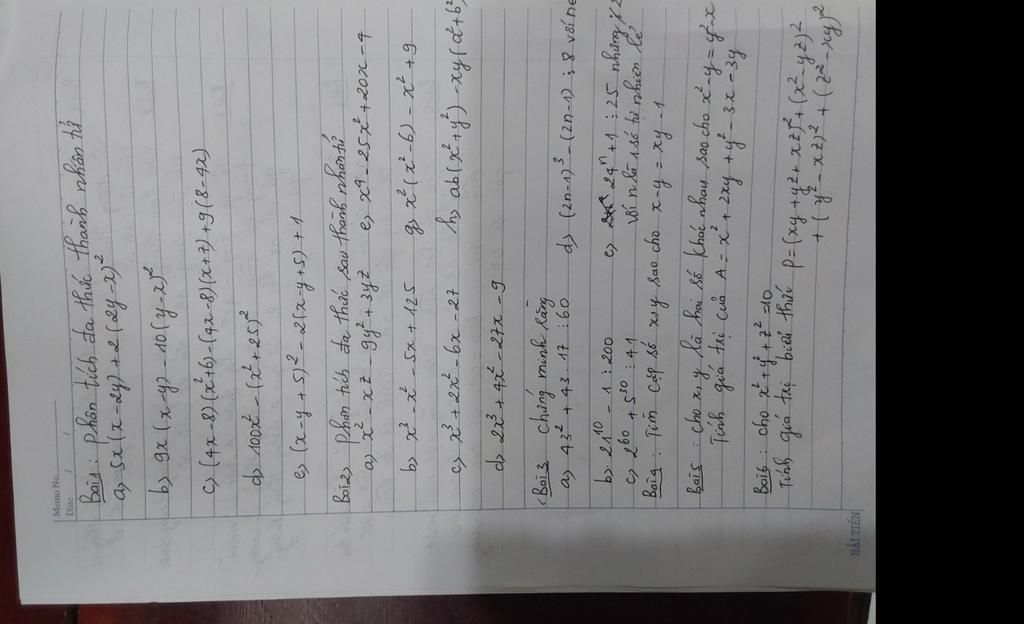 Memo No.
Date / /
Bài 1 : Phân tích đa thức thành nhân tử
a) 5x(x-2y) + 2(2y-x)²
b) 9x(x-y) - 10(y-x)²
c) (4x-8)(x²+6) - (4x-8)(x+7) + 9(8-4x)
d) 100x² - (x²+25)²
e) (x-y+5)² - 2(x-y+5) + 1
Bài 2 : Phân tích đa thức sau thành nhân tử
a) x² - xz - 9y² + 3yz e) x⁴ - 25x² + 20x - 4
b) x³ - x² - 5x + 125 g) x²(x²-6) - x² + 9
c) x³ + 2x² - 6x - 27 h) ab(x²+y²) - xy(a²+b²)
d) 2x³ + 4x² - 27x - 9
Bài 3 chứng minh rằng
a) 43² + 43.17 ⋮ 60 d) (2n-1)³ - (2n-1) ⋮ 8 với
b) 21¹⁰ - 1 ⋮ 200 e) 24ⁿ + 1 ⋮ 25 nhưng
c) 2⁶⁰ + 5³⁰ ⋮ 41 với n là 1 số tự nhiên lẻ
Bài 4 : Tìm cặp số x,y sao cho x-y = xy - 1
Bài 5 : cho x,y là hai số khác nhau sao cho x²-y = y²-x
Tính giá trị của A = x² + 2xy + y² - 3x - 3y
Bài 6 : cho x² + y² + z² = 10
Tính giá trị biểu thức P = (xy + yz + xz)² + (x² - yz)²
+ (y² - xz)² + (z² - xy)²
HẢI TIẾN